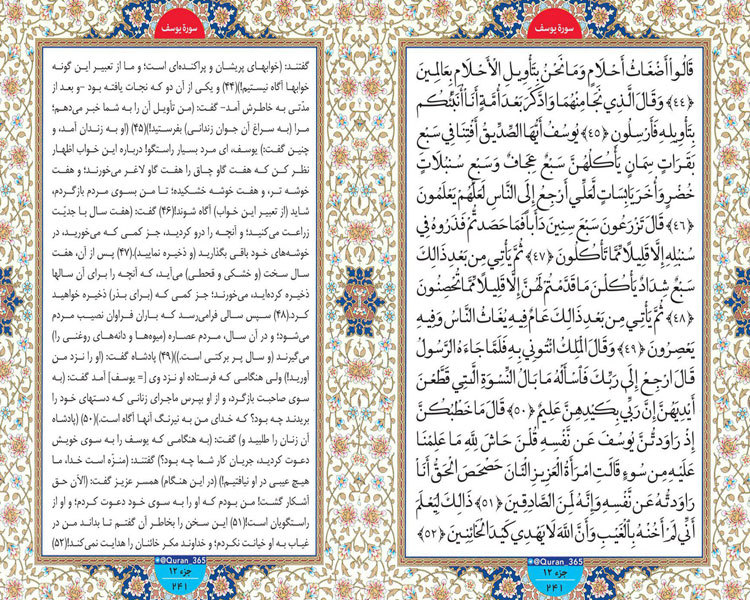 سورة يوسف
قَالُوا أَضْغَاثُ أَحْلَامٍ وَمَا نَحْنُ بِتَأْوِيلِ الْأَحْلَامِ بِعَالِمِينَ
﴿٤٤﴾ وَقَالَ الَّذِي نَجَا مِنْهُمَا وَادَّكَرَ بَعْدَ أُمَّةٍ أَنَا أُنَبِّئُكُم
بِتَأْوِيلِهِ فَأَرْسِلُونِ ﴿٤٥﴾ يُوسُفُ أَيُّهَا الصِّدِّيقُ أَفْتِنَا فِي سَبْعِ
بَقَرَاتٍ سِمَانٍ يَأْكُلُهُنَّ سَبْعٌ عِجَافٌ وَسَبْعِ سُنبُلَاتٍ
خُضْرٍ وَأُخَرَ يَابِسَاتٍ لَّعَلِّي أَرْجِعُ إِلَى النَّاسِ لَعَلَّهُمْ يَعْلَمُونَ
﴿٤٦﴾ قَالَ تَزْرَعُونَ سَبْعَ سِنِينَ دَأَبًا فَمَا حَصَدتُّمْ فَذَرُوهُ فِي
سُنبُلِهِ إِلَّا قَلِيلًا مِّمَّا تَأْكُلُونَ ﴿٤٧﴾ ثُمَّ يَأْتِي مِن بَعْدِ ذَالِكَ
سَبْعٌ شِدَادٌ يَأْكُلْنَ مَا قَدَّمْتُمْ لَهُنَّ إِلَّا قَلِيلًا مِّمَّا تُحْصِنُونَ
﴿٤٨﴾ ثُمَّ يَأْتِي مِن بَعْدِ ذَالِكَ عَامٌ فِيهِ يُغَاثُ النَّاسُ وَفِيهِ
يَعْصِرُونَ ﴿٤٩﴾ وَقَالَ الْمَلِكُ ائْتُونِي بِهِ فَلَمَّا جَاءَهُ الرَّسُولُ
قَالَ ارْجِعْ إِلَى رَبِّكَ فَاسْأَلْهُ مَا بَالُ النِّسْوَةِ الَّتِي قَطَّعْنَ
أَيْدِيَهُنَّ إِنَّ رَبِّي بِكَيْدِهِنَّ عَلِيمٌ ﴿٥٠﴾ قَالَ مَا خَطْبُكُنَّ
إِذْ رَاوَدتُّنَّ يُوسُفَ عَن نَّفْسِهِ قُلْنَ حَاشَ لِلَّهِ مَا عَلِمْنَا
عَلَيْهِ مِن سُوءٍ قَالَتِ امْرَأَةُ الْعَزِيزِ الْآنَ حَصْحَصَ الْحَقُّ أَنَا
رَاوَدتُّهُ عَن نَّفْسِهِ وَإِنَّهُ لَمِنَ الصَّادِقِينَ ﴿٥١﴾ ذَالِكَ لِيَعْلَمَ
أَنِّي لَمْ أَخُنْهُ بِالْغَيْبِ وَأَنَّ اللَّهَ لَا يَهْدِي كَيْدَ الْخَائِنِينَ ﴿٥٢﴾
@Quran_365
جزء ۱۲
۲۴۱
سورة يوسف
گفتند: (خوابهای پریشان و پراکنده‌ای است؛ و ما از تعبیر این گونه
خوابها آگاه نیستیم!)(۴۴) و یکی از آن دو که نجات یافته بود -و بعد از
مدّتی به خاطرش آمد- گفت: (من تأویل آن را به شما خبر می‌دهم؛
مرا (به سراغ آن جوان زندانی) بفرستید!)(۴۵) (او به زندان آمد، و
چنین گفت:) یوسف، ای مرد بسیار راستگو! درباره این خواب اظهار
نظر کن که هفت گاو چاق را هفت گاو لاغر می‌خورند؛ و هفت
خوشه تر، و هفت خوشه خشکیده؛ تا من بسوی مردم بازگردم،
شاید (از تعبیر این خواب) آگاه شوند!(۴۶) گفت: (هفت سال با جدیّت
زراعت می‌کنید؛ و آنچه را درو کردید، جز کمی که می‌خورید، در
خوشه‌های خود باقی بگذارید و (ذخیره نمایید).(۴۷) پس از آن، هفت
سال سخت (و خشکی و قحطی) می‌آید، که آنچه را برای آن سالها
ذخیره کرده‌اید، می‌خورند؛ جز کمی که (برای بذر) ذخیره خواهید
کرد.(۴۸) سپس سالی فرامی‌رسد که باران فراوان نصیب مردم
می‌شود؛ و در آن سال، مردم عصاره (میوه‌ها و دانه‌های روغنی را)
می‌گیرند (و سال پر برکتی است.))(۴۹) پادشاه گفت: (او را نزد من
آورید!) ولی هنگامی که فرستاده او نزد وی [= یوسف] آمد گفت: (به
سوی صاحبت بازگرد، و از او بپرس ماجرای زنانی که دستهای خود را
بریدند چه بود؟ که خدای من به نیرنگ آنها آگاه است.)(۵۰) (پادشاه
آن زنان را طلبید و) گفت: (به هنگامی که یوسف را به سوی خویش
دعوت کردید، جریان کار شما چه بود؟) گفتند: (منزّه است خدا، ما
هیچ عیبی در او نیافتیم!) (در این هنگام) همسر عزیز گفت: (الآن حق
آشکار گشت! من بودم که او را به سوی خود دعوت کردم؛ و او از
راستگویان است!(۵۱) این سخن را بخاطر آن گفتم تا بداند من در
غیاب به او خیانت نکردم؛ و خداوند مکر خائنان را هدایت نمی‌کند!(۵۲)
@Quran_365
جزء ۱۲
۲۴۱